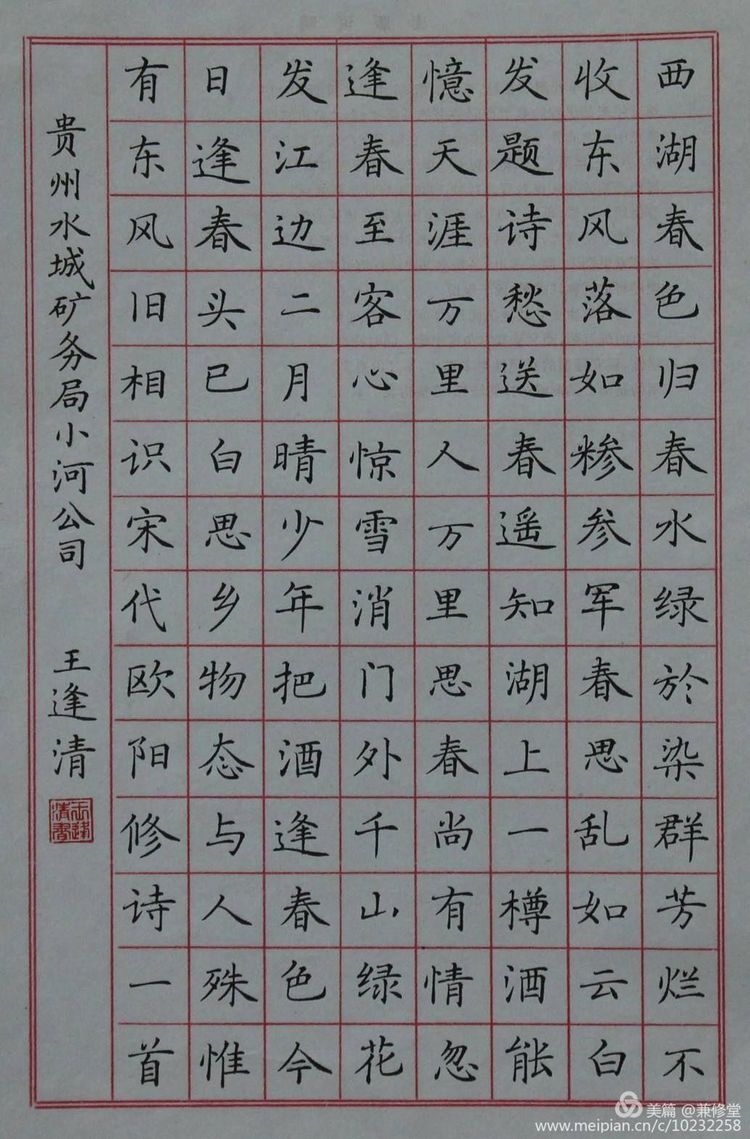 西湖春色归春水绿於染群芳烂不
收东风落如糁参军春思乱如云白
发题诗愁送春遥知湖上一樽酒能
憶天涯万里人万里思春尚有情忽
逢春至客心惊雪消门外千山绿花
发江边二月晴少年把酒逢春色今
日逢春头已白思乡物态与人殊惟
有东风旧相识宋代欧阳修诗一首
贵州水城矿务局小河公司 王逢清
美篇 @兼修堂
www.meipian.cn/c/10232258